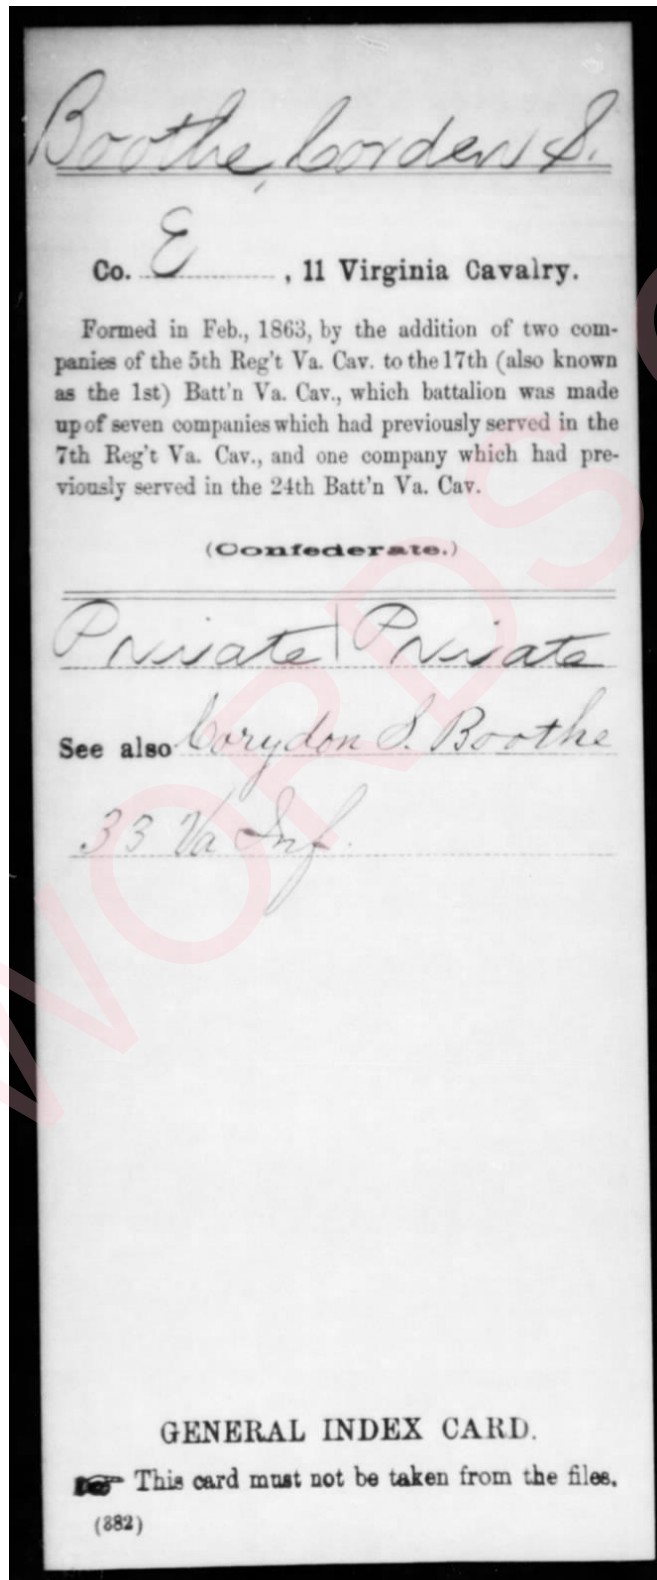 Boothe, Corden S.
Co. E, 11 Virginia Cavalry.
Formed in Feb., 1863, by the addition of two com-
panies of the 5th Reg't Va. Cav. to the 17th (also known
as the 1st) Batt'n Va. Cav., which battalion was made
up of seven companies which had previously served in the
7th Reg't Va. Cav., and one company which had pre-
viously served in the 24th Batt'n Va. Cav.
(Confederate.)
Private | Private
See also Corydon S. Boothe
33 Va Inf.
GENERAL INDEX CARD.
☞ This card must not be taken from the files.
(382)
WORDS